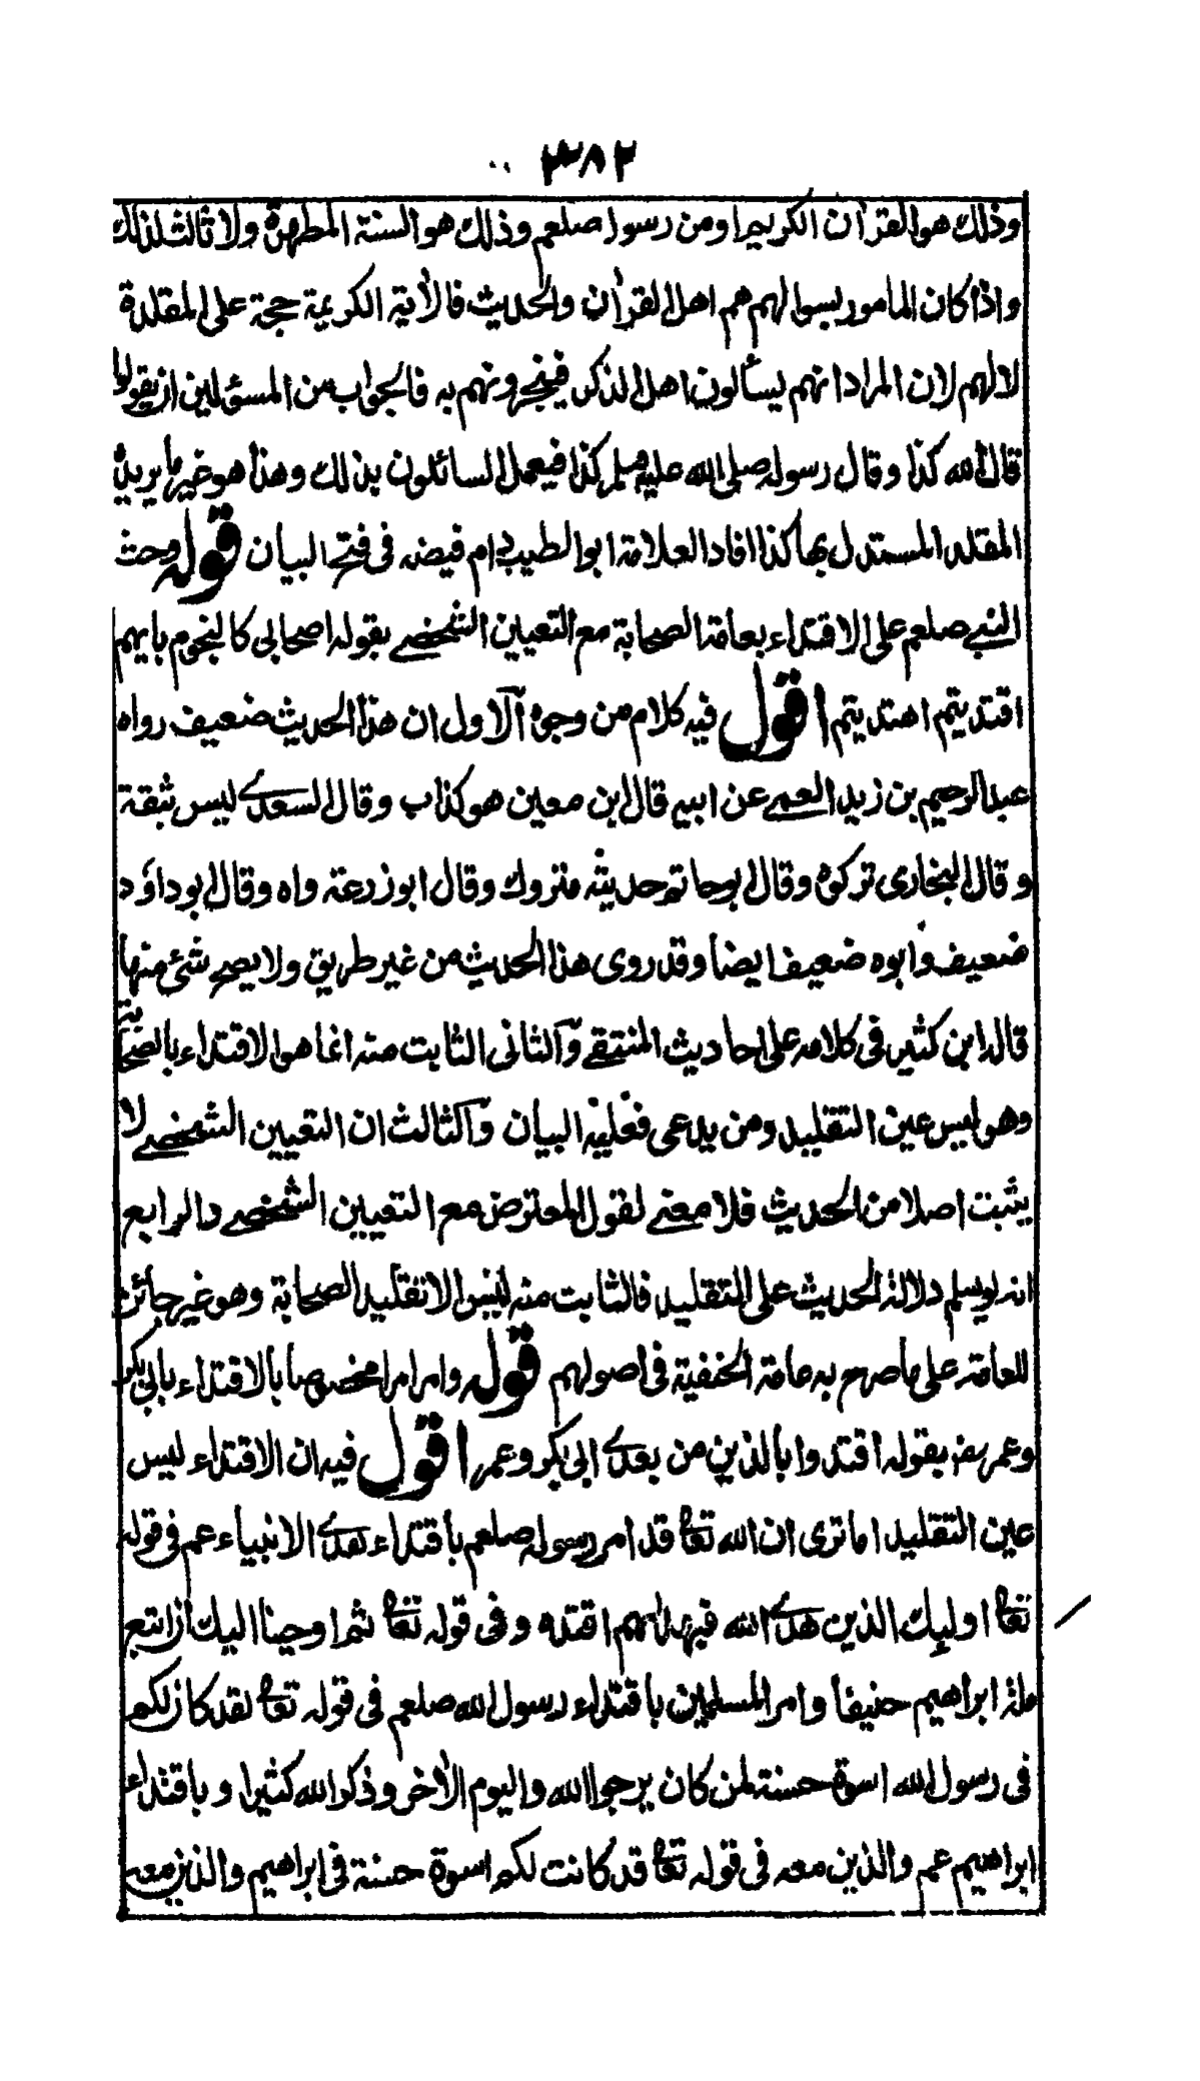 ٣٨٢
وذلك هو القرآن الكريم او من رسوله صلعم وذلك هو السنة المطهرة ولا ثالث لذلك
واذا كان المامور بسوالهم هم اهل القرآن والحديث فالآية الكريمة حجة على المقلدة
لا لهم لان المراد انهم يسألون اهل الذكر فيخبرونهم به فالجواب من المسئولين ان يقولوا
قال الله كذا وقال رسوله صلى الله عليه وسلم كذا فيعمل السائلون بذلك وهذا هو غير ما يريده
المقلد المستدل بها كذا افاد العلامة ابو الطيب دام فيضه فى فتح البيان قوله وحث
النبي صلعم على الاقتداء بعامة الصحابة مع التعيين الشخصے بقوله اصحابى كالنجوم بايهم
اقتديتم اهتديتم اقول فيه كلام من وجوه الاول ان هذا الحديث ضعيف رواه
عبد الرحيم بن زيد العمے عن ابيه قال ابن معين هو كذاب وقال السعدے ليس بثقة
وقال البخارى تركوه وقال ابو حاتم حديثه متروك وقال ابو زرعة واه وقال ابو داؤد
ضعيف وابوه ضعيف ايضا وقد روى هذا الحديث من غير طريق ولا يصح شئ منها
قاله ابن كثير فى كلامه على احاديث المنتقے والثانى الثابت منه انما هو الاقتداء بالصحابة
وهو ليس عين التقليد ومن يدعى فعليه البيان والثالث ان التعيين الشخصے لا
يثبت اصلا من الحديث فلا معنے لقول المعترض مع التعيين الشخصے والرابع
انه لو سلم دلالة الحديث على التقليد فالثابت منه ليس الا تقليد الصحابة وهو غير جائز
للعامة على ما صرح به عامة الحنفية فى اصولهم قوله وامر امرا مخصوصا بالاقتداء بابى بكر
وعمر رضـ بقوله اقتدوا بالذين من بعدے ابى بكر وعمر اقول فيه ان الاقتداء ليس
عين التقليد اما ترى ان الله تعا قد امر رسوله صلعم باقتداء هدے الانبياء عم فى قوله
تعا اولئك الذين هدے الله فبهداهم اقتده وفى قوله تعا ثم اوحينا اليك ان اتبع
ملة ابراهيم حنيفا وامر المسلمين باقتداء رسول الله صلعم فى قوله تعا لقد كان لكم
فى رسول الله اسوة حسنة لمن كان يرجوا الله واليوم الآخر وذكر الله كثيرا وباقتداء
ابراهيم عم والذين معه فى قوله تعا قد كانت لكم اسوة حسنة فى ابراهيم والذين معه